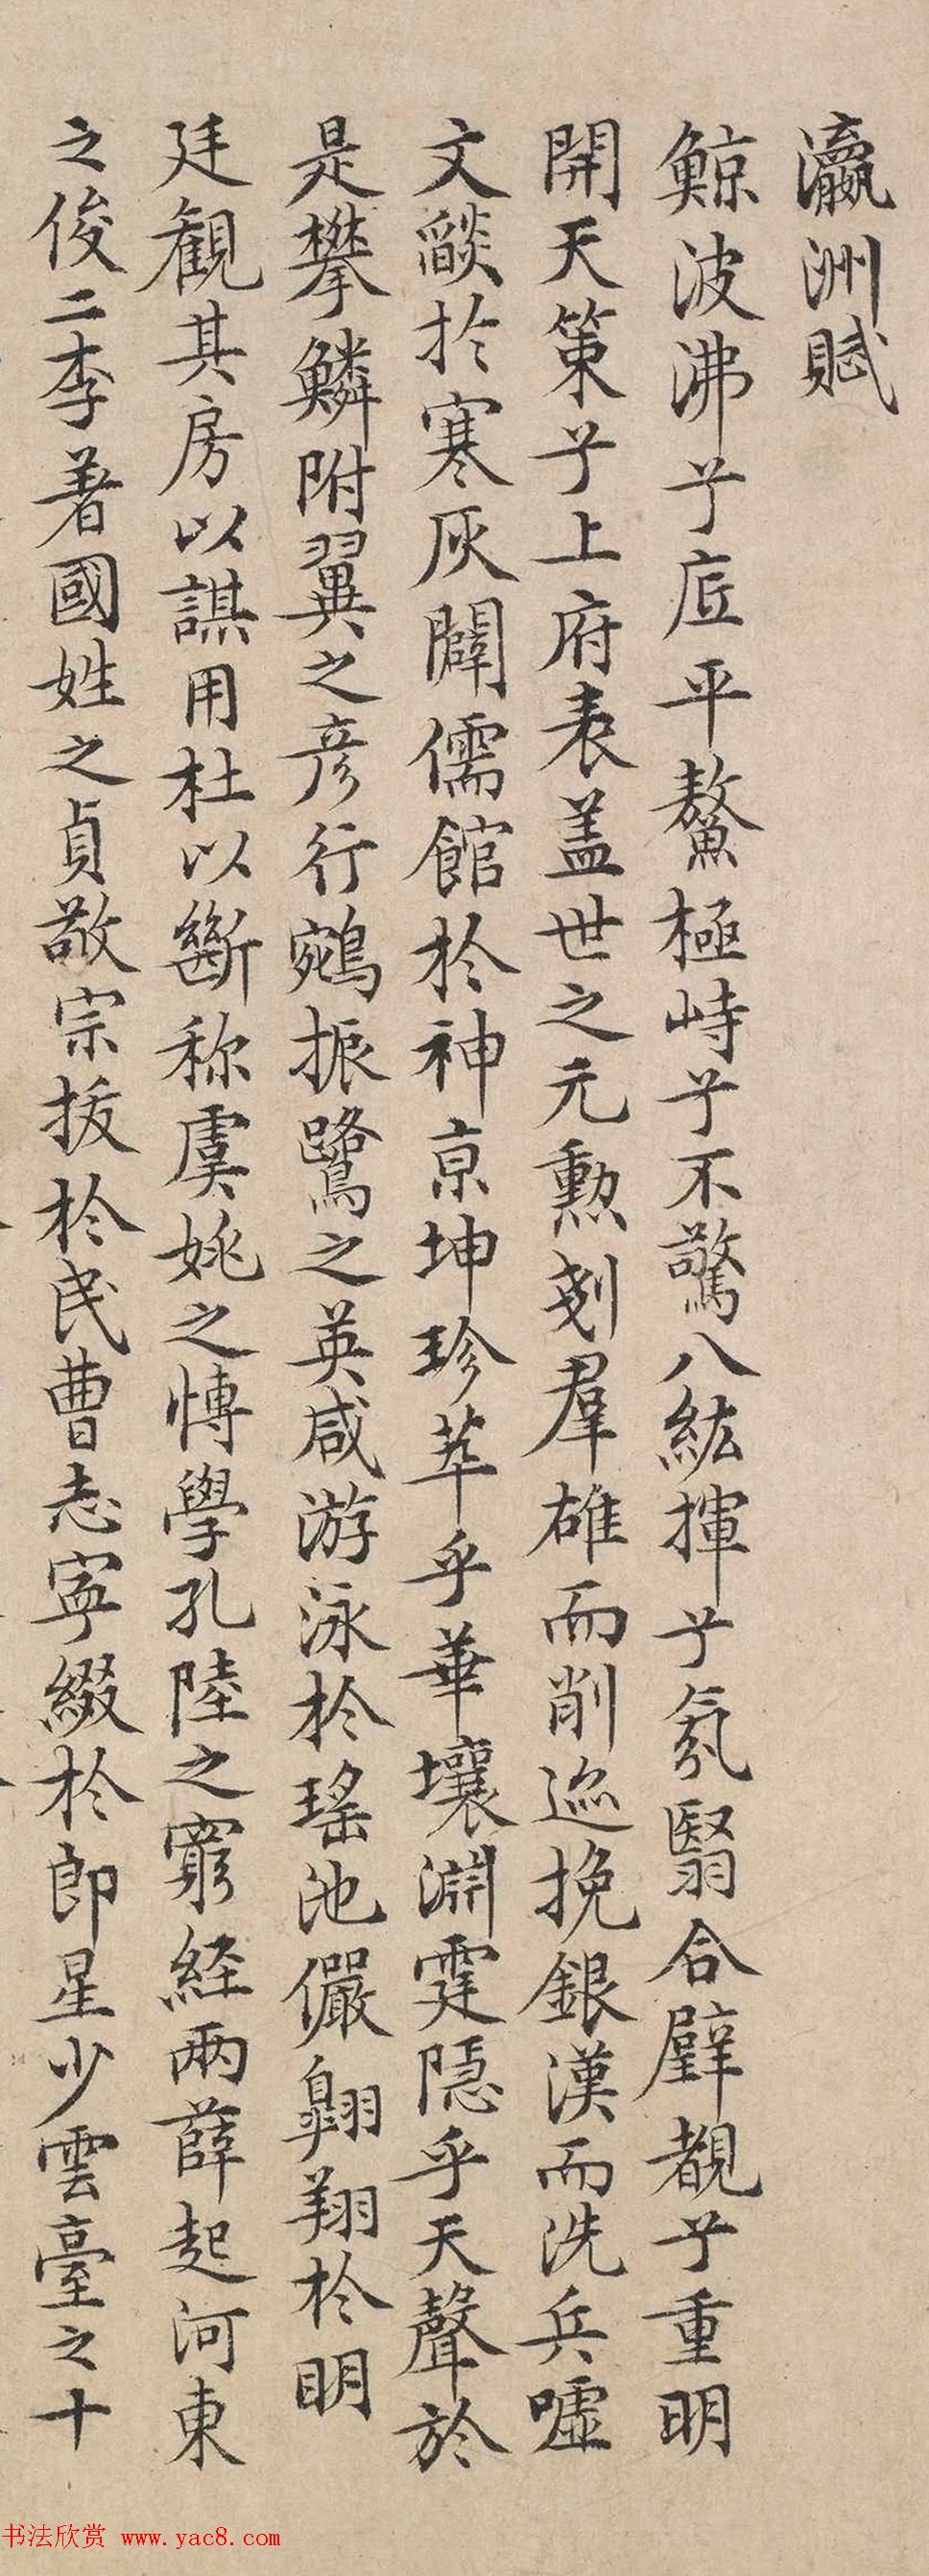 瀛洲賦
鯨波沸兮底平鰲極峙兮不驚八紘揮兮氛翳合璧覩兮重明
開天策兮上府表蓋世之元勲剗羣雄而削迹挽銀漢而洗兵噓
文燄於寒灰闢儒館於神京坤珍萃乎華壤淵霆隱乎天聲於
是攀鱗附翼之彦行鵷振鷺之英咸游泳於瑤池儼翱翔於明
廷觀其房以謀用杜以斷称虞姚之博學孔陸之窮経兩薛起河東
之俊二李著國姓之貞敬宗拔於民曹志寧綴於郎星少雲臺之十
书法欣赏 www.yac8.com